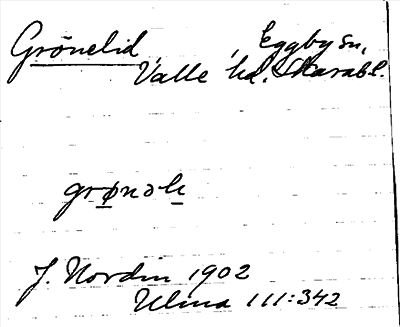 Grönelid, Eggby sn,
Valle hd. Skarabl.
grønəli
J. Nordin 1902
Ulma 111:342